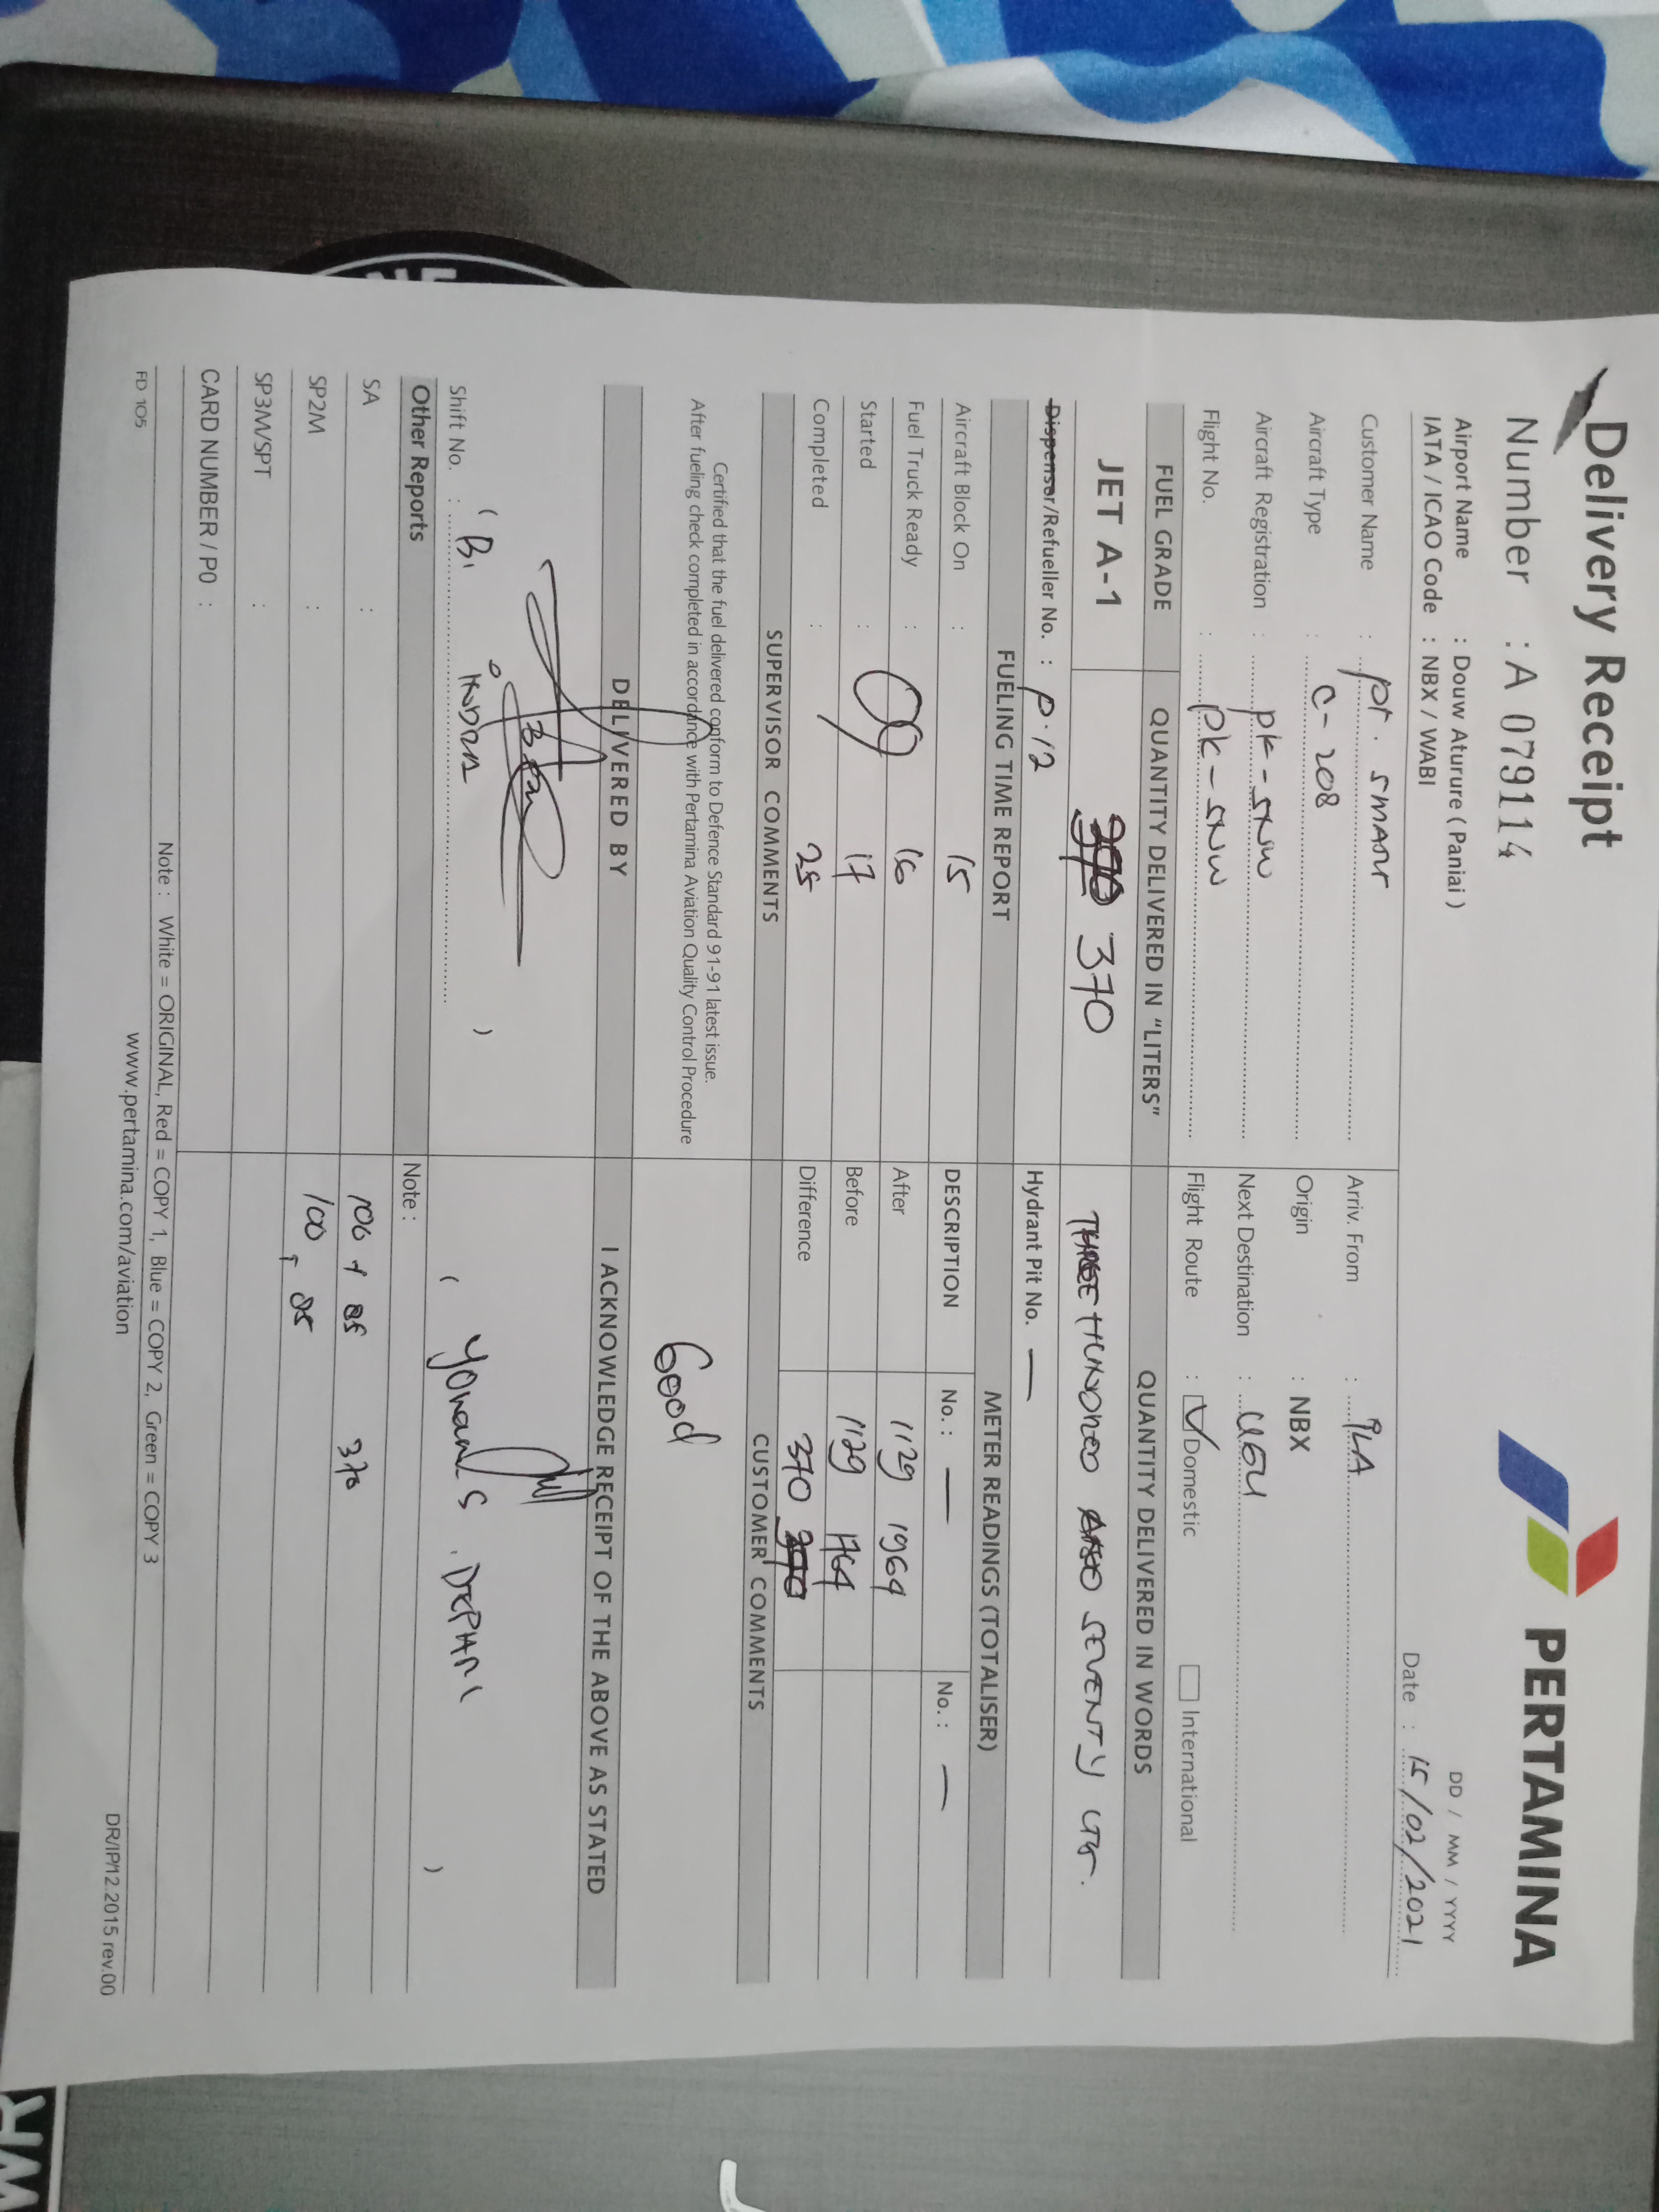 Delivery Receipt
PERTAMINA
Number : A 079114
Airport Name : Douw Aturure ( Paniai )
IATA / ICAO Code : NBX / WABI
DD / MM / YYYY
Date : 15/02/2021
Customer Name : PT. SMART
Arriv. From :
Aircraft Type : C-208
Origin : NBX
Aircraft Registration : PK-SNW
Next Destination :
Flight No. : PK-SNW
Flight Route : Domestic International
FUEL GRADE QUANTITY DELIVERED IN "LITERS" QUANTITY DELIVERED IN WORDS
JET A-1 370 THREE HUNDRED SEVENTY LTR.
Dispenser/Refueller No. : P.12 Hydrant Pit No. —
FUELING TIME REPORT METER READINGS (TOTALISER)
Aircraft Block On : 15 DESCRIPTION No. : — No. : —
Fuel Truck Ready : 16 After 1129 1964
Started : 17 Before 1129 1764
Completed : 25 Difference 370
SUPERVISOR COMMENTS CUSTOMER COMMENTS
Good
Certified that the fuel delivered conform to Defence Standard 91-91 latest issue.
After fueling check completed in accordance with Pertamina Aviation Quality Control Procedure
DELIVERED BY I ACKNOWLEDGE RECEIPT OF THE ABOVE AS STATED
Shift No. : ( ) ( )
Other Reports Note :
SA :
370
SP2M :
SP3M/SPT :
CARD NUMBER / PO :
Note : White = ORIGINAL, Red = COPY 1, Blue = COPY 2, Green = COPY 3
FD 105
www.pertamina.com/aviation
DR/IP/12.2015 rev.00